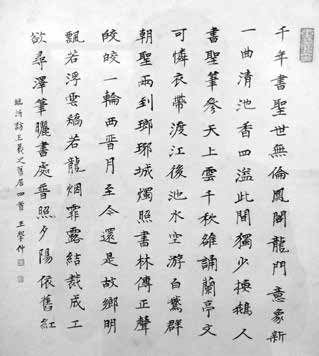 千年書聖世無倫鳳閣龍門意象新
一曲清池香四溢此間獨少換鵝人
書聖筆參天上雲千秋雄誦蘭亭文
可憐衣帶渡江後池水空游白鵞群
朝聖兩到瑯琊城燭照書林傳正聲
皎皎一輪西晉月至今還是故鄉明
飄若浮雲矯若龍烟霏露結裁成工
欲尋澤筆曬書處普照夕陽依舊紅
臨沂訪王羲之舊居四首 王學仲